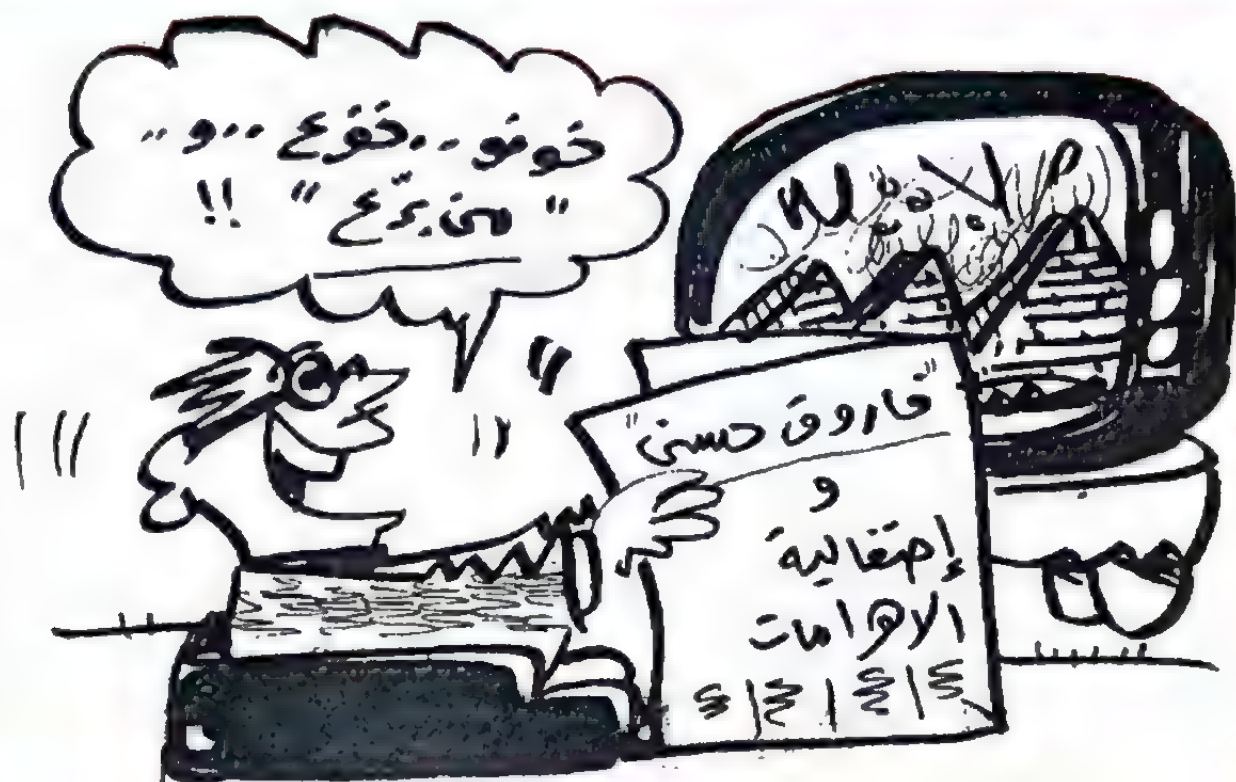 خوفو .. خفرع .. و ..
" منـ برّع " !!
"فاروق حسنى"
و
إحتفالية
الاهرامات